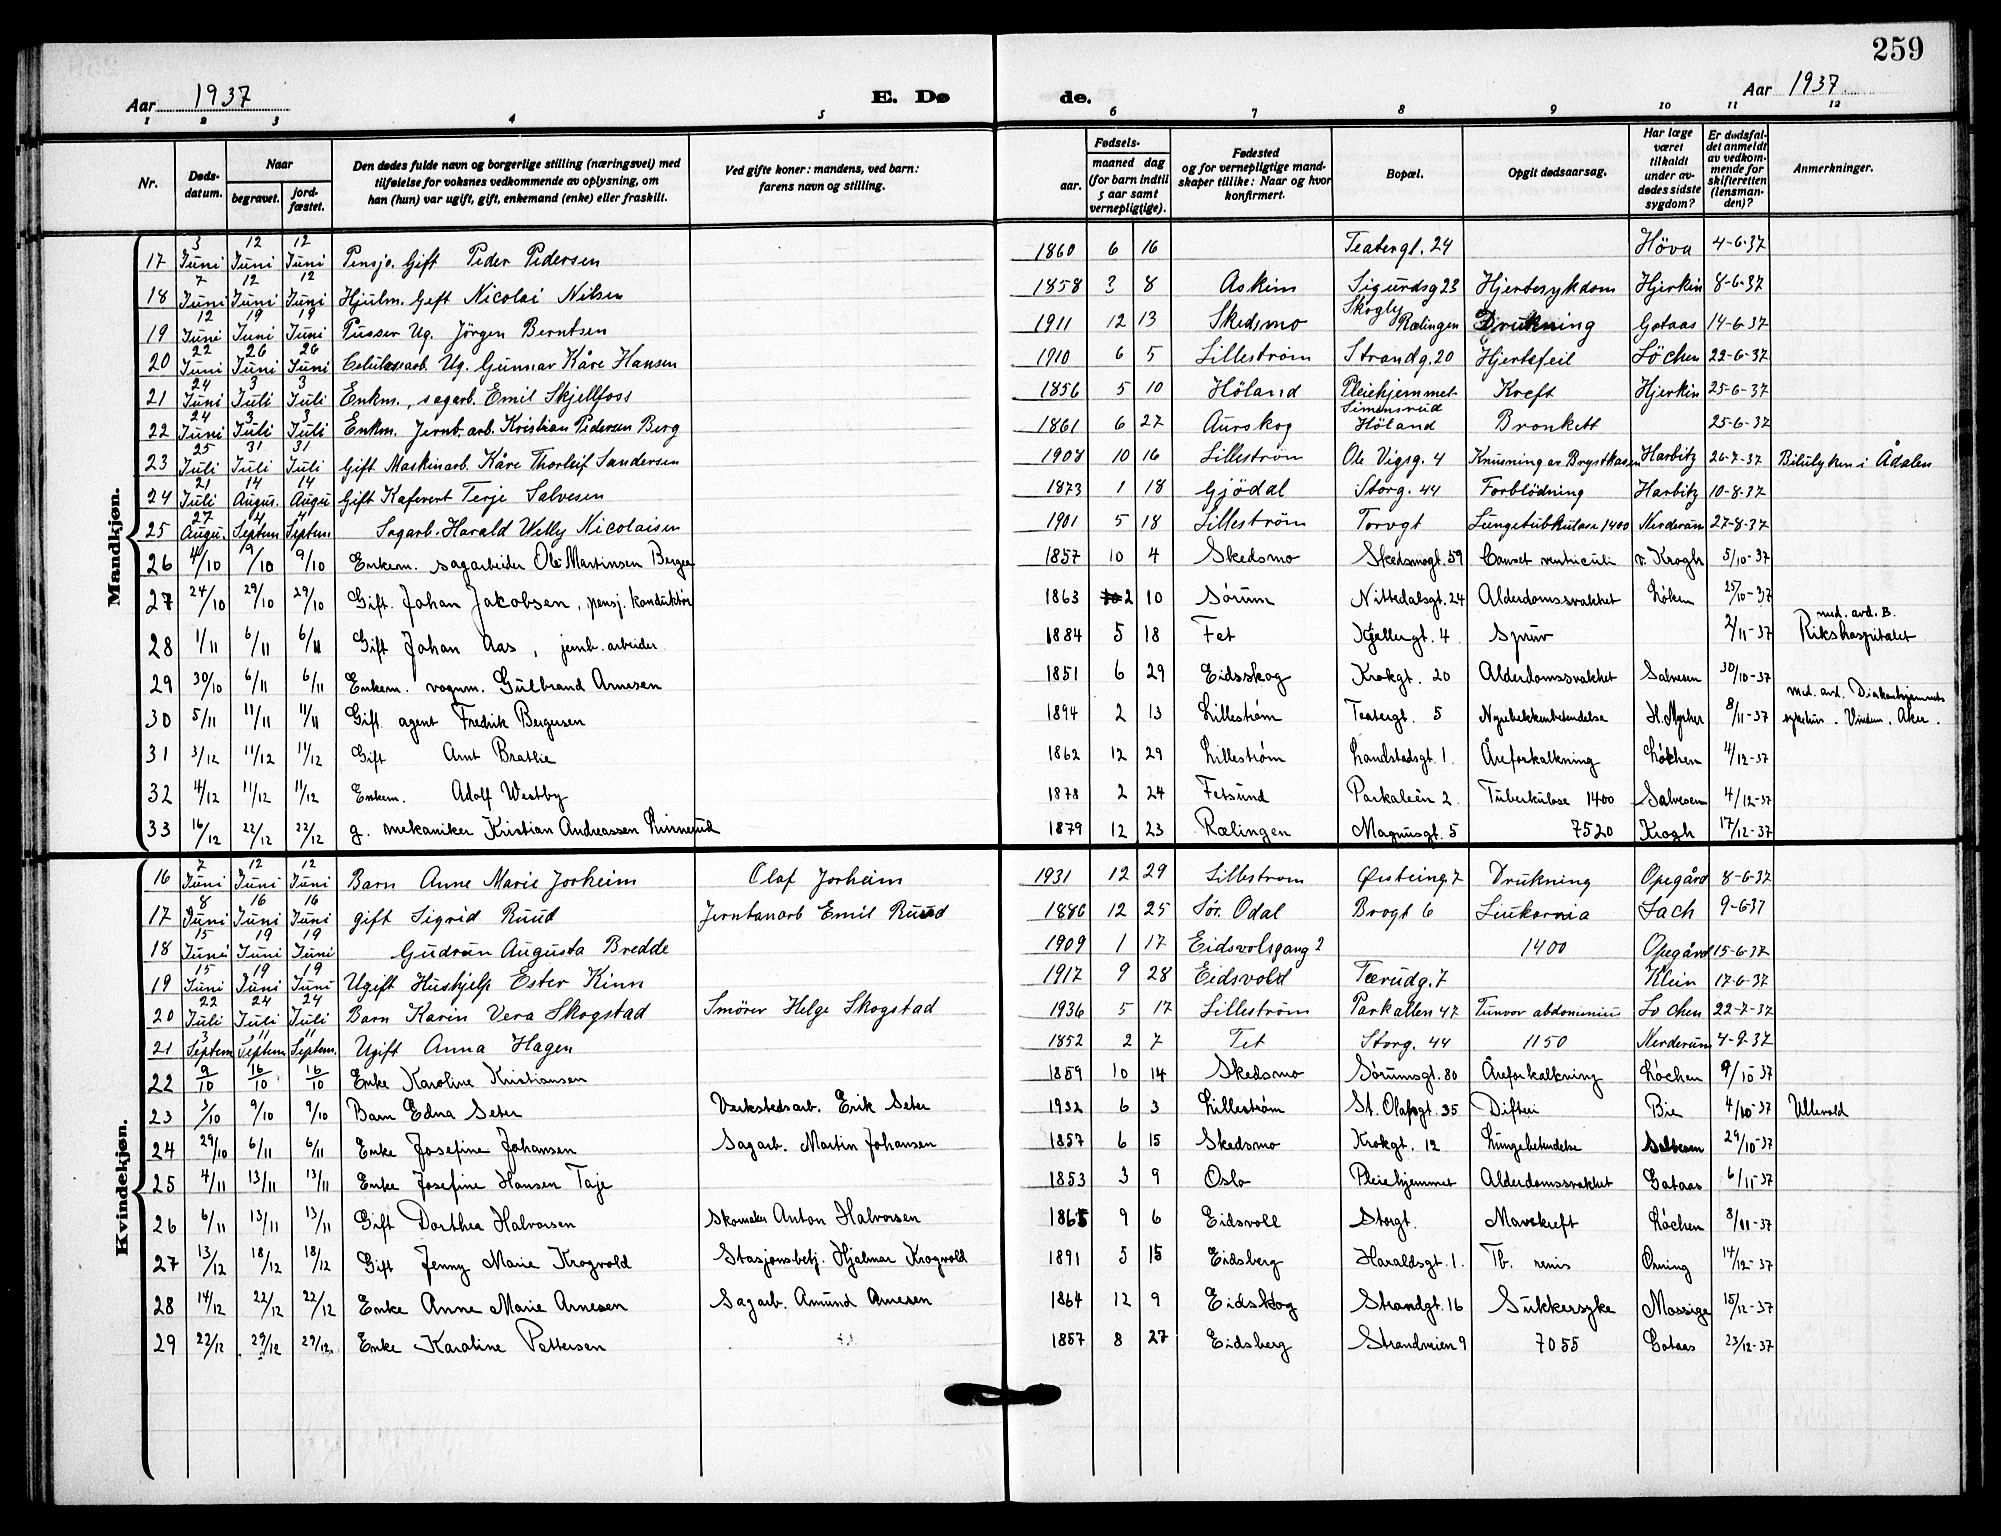 259
Aar 1937
E. Dø
de.
Aar 1937
1 2 3 4 5 6 7 8 9 10 11 12
Nr.
Døds-
datum.
Naar
begravet.
jord-
fæstet.
Den dødes fulde navn og borgerlige stilling (næringsvei) med
tilføielse for voksnes vedkommende av oplysning, om
han (hun) var ugift, gift, enkemand (enke) eller fraskilt.
Ved gifte koner: mandens, ved barn:
farens navn og stilling.
Fødsels-
aar.
maaned dag
(for barn indtil
5 aar samt
vernepligtige).
Fødested
og for vernepligtige mand-
skaper tillike: Naar og hvor
konfirmert.
Bopæl.
Opgit dødsaarsag.
Har læge
været
tilkaldt
under av-
dødes sidste
sygdom?
Er dødsfal-
det anmeldt
av vedkom-
mende for
skifteretten
(lensman-
den)?
Anmerkninger.
Mandkjøn.
17 3 Juni 12 Juni 12 Juni Pensjo. Gift Peder Pedersen 1860 6 16 Teatergt. 24 Höva 4-6-37
18 7 Juni 12 Juni 12 Juni Hjulm. Gift Nicolai Nilsen 1858 3 8 Askim Sigurdsg 23 Hjertesykdom Hjerkin 8-6-37
19 12 Juni 19 Juni 19 Juni Pusser Ug. Jörgen Berntsen 1911 12 13 Skedsmo Skogly Rælingen Drukning Gotaas 14-6-37
20 22 Juni 26 Juni 26 Juni Celulosearb. Ug. Gunnar Kåre Hansen 1910 6 5 Lilleström Strandg. 20 Hjertefeil Löchen 22-6-37
21 24 Juni 3 Juli 3 Juli Enkm., sagarb. Emil Skjellfoss 1856 5 10 Höland Pleiehjemmet Kreft Hjerkin 25-6-37
22 24 Juni 3 Juli 3 Juli Enkm. Jernb. arb. Kristian Pedersen Berg 1861 6 27 Aurskog Simensrud Höland Bronkett 25-6-37
23 25 Juli 31 Juli 31 Juli Gift Maskinarb. Kåre Thorleif Sandersen 1908 10 16 Lilleström Ole Vigsg. 4 Knusning av Brystkassen Harbitz 26-7-37 Bilulyken i Ådalen
24 21 Juli 14 Augus. 14 Augu Gift Kafevert Terje Salvesen 1873 1 18 Gjödal Storg. 44 Forblödning Harbitz 10-8-37
25 27 Augu. 4 Septem 4 Septem. Sagarb. Harald Willy Nicolaisen 1901 5 18 Lilleström Torvgt Lungetubkulose 1400 Nerderum 27-8-37
26 4/10 9/10 9/10 Enkem. sagarbeider Ole Martinsen Berger 1857 10 4 Skedsmo Skedsmogt. 59 Canset ventriculi v. Krogh 5/10-37
27 24/10 29/10 29/10 Gift. Johan Jakobsen, pensj. konduktör 1863 2 10 Sörum Nittedalsgt. 24 Alderdomssvakhet Löken 25/10-37
28 1/11 6/11 6/11 Gift Johan Aas, jernb. arbeider 1884 5 18 Fet Kjellergt. 4 2/11-37 med. avd. B. Rikshospitalet
29 30/10 6/11 6/11 Enkem. vognm. Gulbrand Arnesen 1851 6 29 Eidsskog Krokgt. 20 Alderdomssvakhet Salvesen 30/10-37
30 5/11 11/11 11/11 Gift agent Fredrik Bergersen 1894 2 13 Lilleström Teatergt. 5 Nyrebekkenbetendelse H. Myrher 8/11-37 med. avd. Diakonhjemmets sykehus. Vindern. Aker.
31 3/12 11/12 11/12 Gift Arnt Brathie 1862 12 29 Lilleström Landstadsgt. 1. Åreforkalkning Löchen 4/12-37
32 4/12 11/12 11/12 Enkem. Adolf Westby 1878 2 24 Fetsund Parkaleèn 2. Tuberkulose 1400 Salvesen 4/12-37
33 16/12 22/12 22/12 g. mekaniker Kristian Andreassen 1879 12 23 Rælingen Magnusgt. 5 7520 Krogh 17/12-37
Kvindekjøn.
16 7 Juni 12 Juni 12 Juni Barn Anne Marie Jorheim Olaf Jorheim 1931 12 29 Lillestrom Öisteing. 7 Drukning Opegård 8-6-37
17 8 Juni 16 Juni 16 Juni gift Sigrid Ruud Jernbanarb Emil Ruud 1886 12 25 Sör. Odal Brogt 6 Liukornia Lach 9-637
18 15 Juni 19 Juni 19 Juni Gudrun Augusta Bredde 1909 1 17 Eidsvolsgang 2 1400 Opegård 15-6-37
19 15 Juni 19 Juni 19 Juni Ugift Hushjelp Ester Kinn 1917 9 28 Eidsvold Tærudg. 7 Klein 17-6-37
20 22 Juli 24 Juli 24 Juli Barn Karin Vera Skogstad Smörer Helge Skogstad 1936 5 17 Lilleström Parkallen 47 Tumor abdominius Lochen 22-7-37
21 3 Septem 11 Septem 11 Septem. Ugift Anna Hagen 1852 2 7 Fet Storg. 44 1150 Nerderum 4-9-37
22 9/10 16/10 16/10 Enke Karoline Kristiansen 1859 10 14 Skedsmo Sörumsgt. 80 Åreforkalkning Löchen 9/10-37
23 3/10 9/10 9/10 Barn Edna Seter Verkstedsarb. Erik Seter 1932 6 3 Lilleström St. Olafsgt. 35 Difteri Bie 4/10-37 Ullevold
24 29/10 6/11 6/11 Enke Josefine Johansen Sagarb. Martin Johansen 1857 6 15 Skedsmo Krokgt. 12 Lungebetendelse Salvesen 29/10-37
25 4/11 13/11 13/11 Enke Josefine Hansen Taje 1853 3 9 Oslo Pleiehjemmet Alderdomssvakhet Gotaas 6/11-37
26 6/11 13/11 13/11 Gift Dorthea Halvorsen Skomaker Anton Halvorsen 1865 9 6 Eidsvoll Storgt. Mavekreft Löchen 8/11-37
27 13/12 18/12 18/12 Gift Jenny Marie Krogvold Stasjonsbetj. Hjalmar Krogvold 1891 5 15 Eidsberg Haraldsgt. 1. Tb. renis Orning 14/12-37
28 14/12 22/12 22/12 Enke Anne Marie Arnesen Sagarb. Amund Arnesen 1864 12 9 Eidskog Strandgt. 16 Sukkersyke Mossige 15/12-37
29 22/12 29/12 29/12. Enke Karoline Pettersen 1857 8 27 Eidsberg Strandveien 9 7055 Gotaas 23/12-37